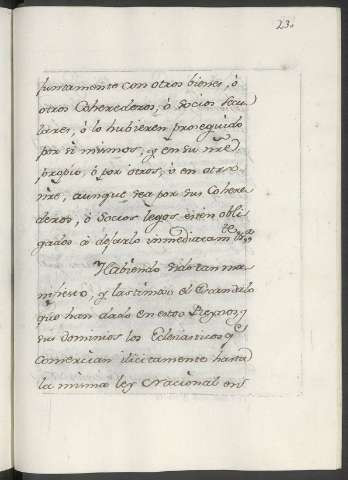 23.
juntamente con otros bienes, ò
otros Coherederos, ò socios secu
lares, ò lo hubieren proseguido
por si mismos, y en su nre
proprio, ò por otros, ò en otro
nre, aunque sea por sus Cohere
deros, ò socios legos estèn obli
gados à dejarlo inmediatamte
Habiendo sido tan ma
nifiesto, y lastimoso el Escandalo
que han dado en estos Reynos, y
sus Dominios los Eclesiasticos qe
comercian ilicitamente hasta
la misma ley Nacional en